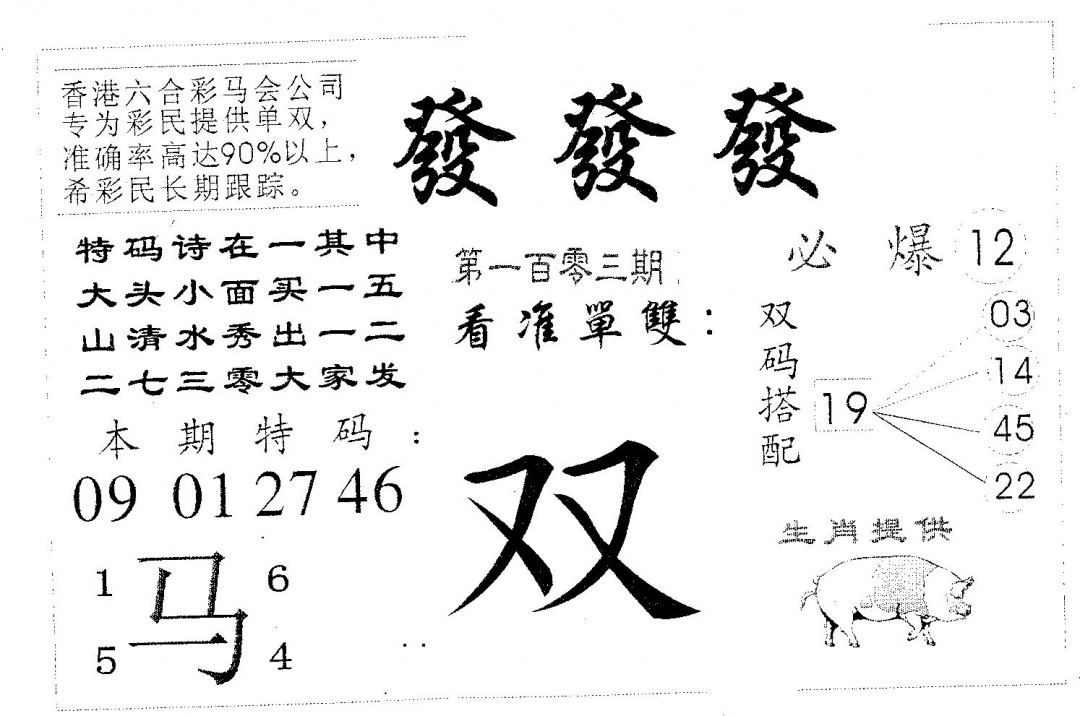 香港六合彩马会公司
专为彩民提供单双，
准确率高达90%以上，
希彩民长期跟踪。
發發發
特码诗在一其中
大头小面买一五
山清水秀出一二
二七三零大家发
第一百零三期
看准單雙：
双
必爆 12
双码搭配
19
03
14
45
22
本期特码：
09 01 27 46
1 马 6
5 4
生肖提供